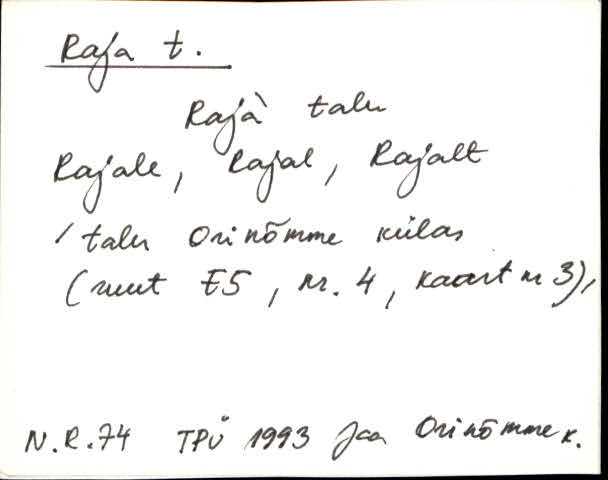 Raja t.
Rajà talu
Rajale, Rajal, Rajalt
/talu Orinõmme külas
(ruut E5, nr. 4, kaart nr 3),
N.R.74 TPÜ 1993 Jaa Orinõmme k.